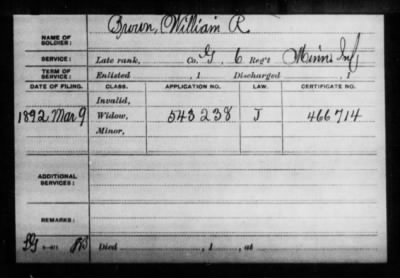 NAME OF SOLDIER: Brown, William R.
SERVICE: Late rank, Co. G, 6 Reg't Minn. Inf.
TERM OF SERVICE: Enlisted , 1 Discharged , 1
DATE OF FILING. CLASS. APPLICATION NO. LAW. CERTIFICATE NO.
Invalid,
1892 Mar 9 Widow, 543238 J 466714
Minor,
ADDITIONAL SERVICES:
REMARKS:
Died , 1 , at